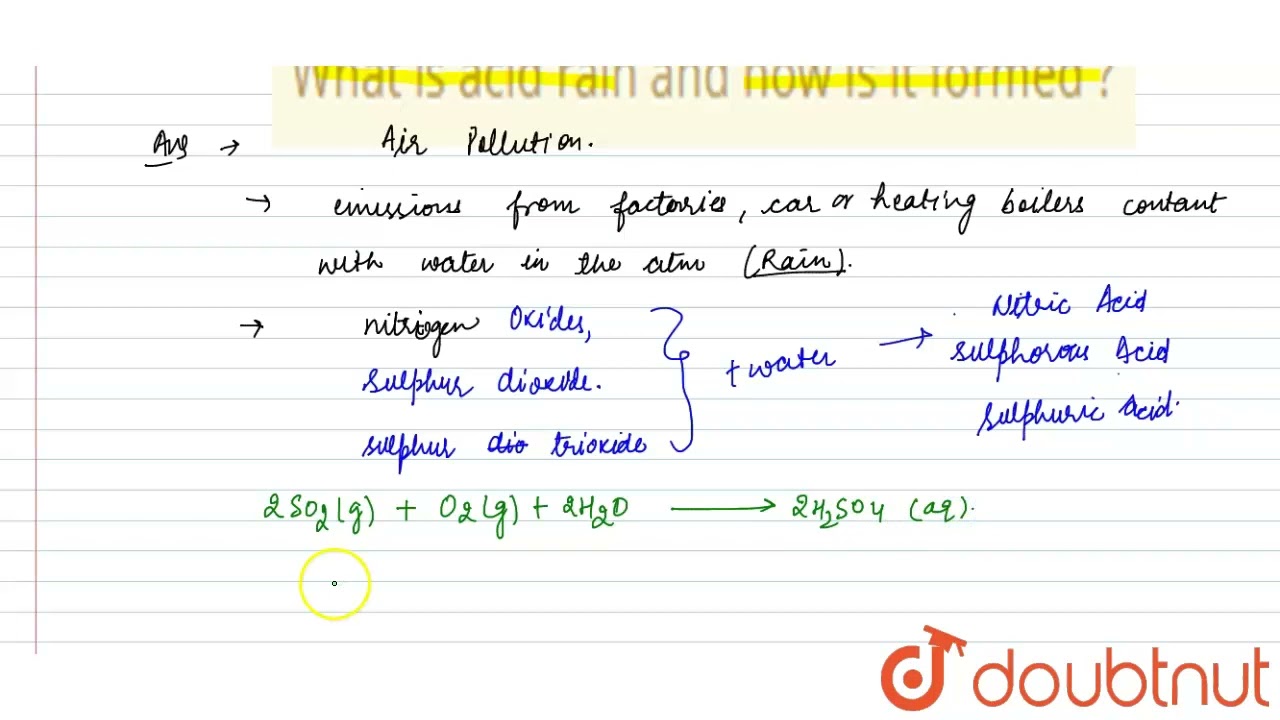 What is acid rain and how is it formed ?
Ans → Air Pollution.
→ emissions from factories, car or heating boilers contant
with water in the atm (Rain).
→ nitrogen Oxides,
sulphur dioxide.
sulphur dio trioxide
+ water →
Nitric Acid
sulphorous Acid
sulphuric Acid.
2SO2(g) + O2(g) + 2H2O → 2H2SO4 (aq).
doubtnut